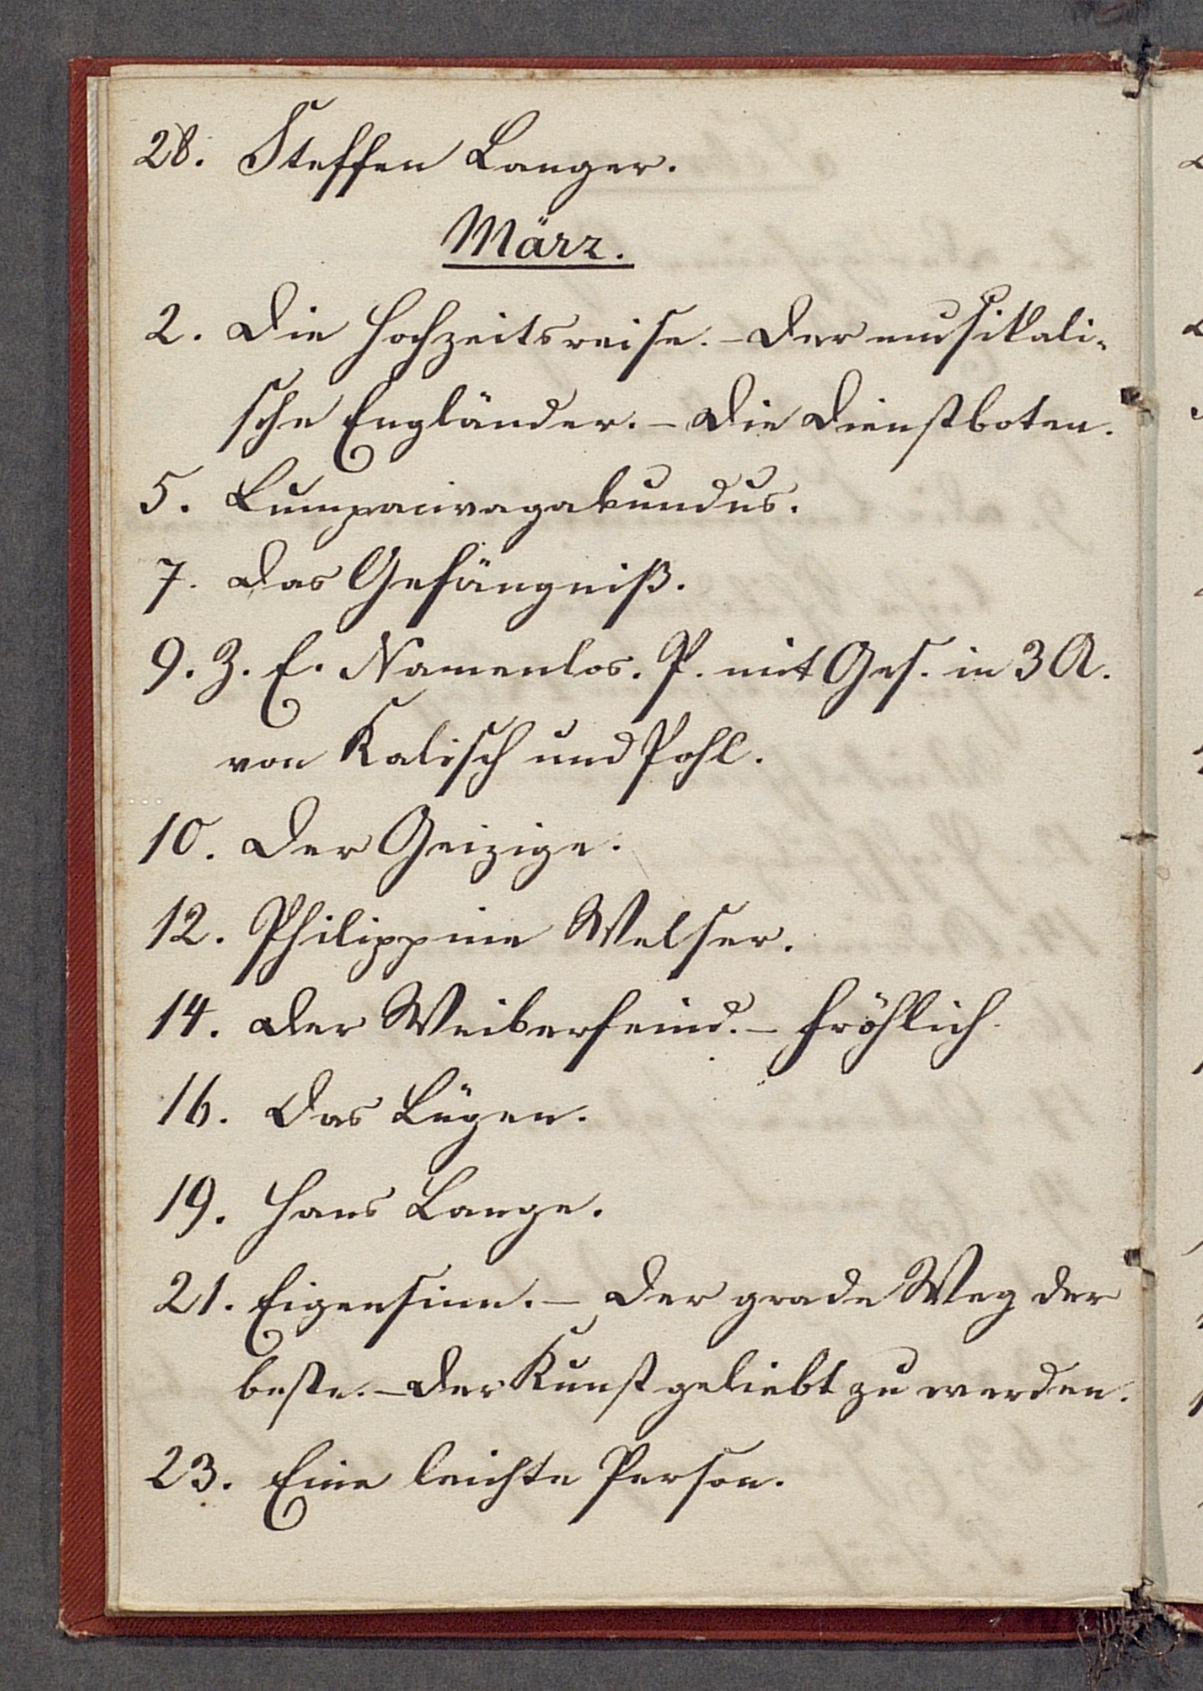 28. Steffen Langer.
März.
2. Die Hochzeitsreise. – Der musikali-
sche Engländer. – Die Dienstboten.
5. Lumpacivagabundus.
7. Das Gefängniß.
9. Z. E. Namenlos. P. mit Ges. in 3 A.
von Kalisch und Pohl.
10. Der Geizige.
12. Philippine Welser.
14. Der Weiberfeind. – Fröhlich
16. Das Lügen.
19. Hans Lange.
21. Eigensinn. – Der grade Weg der
beste. – Der Kunst geliebt zu werden.
23. Eine leichte Person.